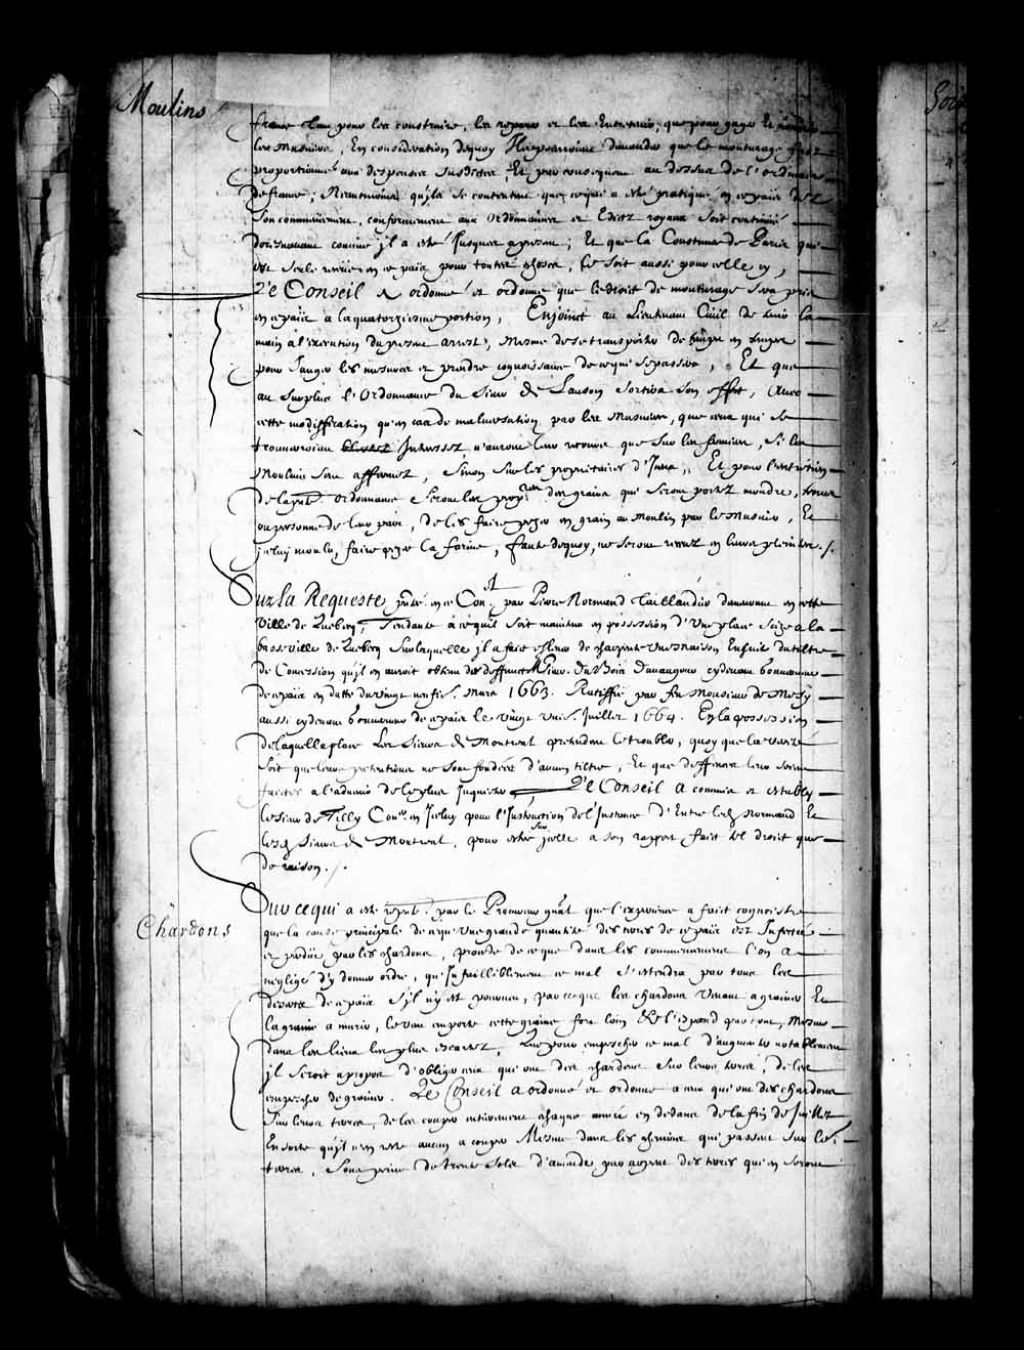 Moulins
france tant pour les construire, les reparer et les Entretenir, que pour gages et
les Musniers, En consideration dequoy Ilz pourroient demander que le mouturage fust
proportionné aux despences susdites, Et par consequent au dessus de l'ordinaire
de france; Neantmoins qu'ils se contentent que ce qui a esté pratiqué en ce païs dez
son commancement, conformement aux Ordonnances et Edictz royaux soit continué
doresnavant comme jl a esté Jusques apresent; Et que la Coustume de Paris qui
est seule receüe en ce païs pour toutes choses, le soit aussi pour celle cy,
Le Conseil A ordonné et ordonne que le droit de mouturage sera pris
en ce païs a la quatorziesme portion, Enjoinct au Lieutenant Civil de tenir la
main à l'execution du present arrest, mesme de se transporter de temps en temps
pour Jauger les mesures et prendre cognoissance de ce qui se passera, Et que
au surplus l'Ordonnance du Sieur de Lauson sortira son effet, Avec
cette modiffication qu'en cas de malversation par les Musniers, que ceux qui se
trouveroient Interessez n'auront leur recours que sur les fermiers, si les
Moulins sont affermez, sinon sur les proprietaires d'Iceux, Et pour l'execution
de la pnte ordonnance Seront les propres des grains qui seront portez moudre, tenus
ou personne de leur part, de les faire pezer en grain au Moulin par le Musnier, Et
jceluy moulu, faire pezer la farine, faute dequoy, ne seront receuz en leurs plaintes ./.
Sur la Requeste pntée en ce Conel par Pierre Normand Taillandier demeurant en cette
Ville de Quebecq, Tendante à ce qu'il soit maintenu en possession d'Une place Seize a la
basse ville de Quebecq Sur laquelle jl a fait eslever de charpente Une maison Ensuite du tiltre
de Concession qu'jl en auroit obtenu de deffunct Mr le Sieur Du Bois Davaugour cydevant Gouverneur
de ce païs en datte du vingt neufe. Mars 1663. Ratiffié par feu Monsieur de Mesy
aussi cydevant Gouverneur de ce païs le vingt unie. Juillet 1664. En la possession
de laquelle place Les Sieurs de Montreal pretendent le troubler, quoy que la verité
soit que leurs pretentions ne sont fondées d'aucun tiltre, Et que deffences leur soient
faictes a l'advenir de le plus Inquieter Le Conseil A commis et estably
le Sieur de Tilly Conser. en Jceluy pour l'Instruction de l'Instance d'Entre led. Normand Et
lesd. Sieurs de Montreal, pour estre sur jcelle a son rapport fait tel droit que
de raison ./.
Chardons
Sur ce qui a esté repnté par le Procureur gnal que l'experience a faict cognoistre
que la cause principale de ce qu'une grande quantité des terres de ce païs est Infectée
et perdüe par les chardons, procede de ce que dans les commencemens l'on a
negligé d'y donner ordre, qu'Infailliblement ce mal s'estendra par tous les
desertz de ce païs s'jl n'y est pourveu, parce que les chardons venant a grainer Et
la graine a meurir, le vent emporte cette graine fort loin & l'espand par tout, Mesme
dans les lieux les plus escartez, Que pour empescher ce mal d'augmenter notablement
jl seroit apropos d'obliger ceux qui ont des chardons sur leurs terres, de les
empescher de grainer. Le Conseil a ordonné et ordonne a ceux qui ont des chardons
sur leurs terres, de les couper entierement chaque année en dedans de la fin de Juillet
En sorte qu'jl n'en reste aucun a couper Mesme dans les chemins qui passent sur les.
terres, sous peine de trente solz d'amande par arpent des terres qui en seront